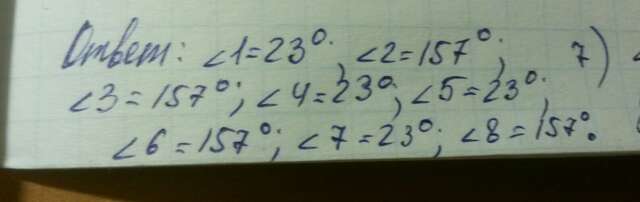 Ответ: ∠1=23°; ∠2=157°; 7)
∠3=157°; ∠4=23°; ∠5=23°;
∠6=157°; ∠7=23°; ∠8=157°.